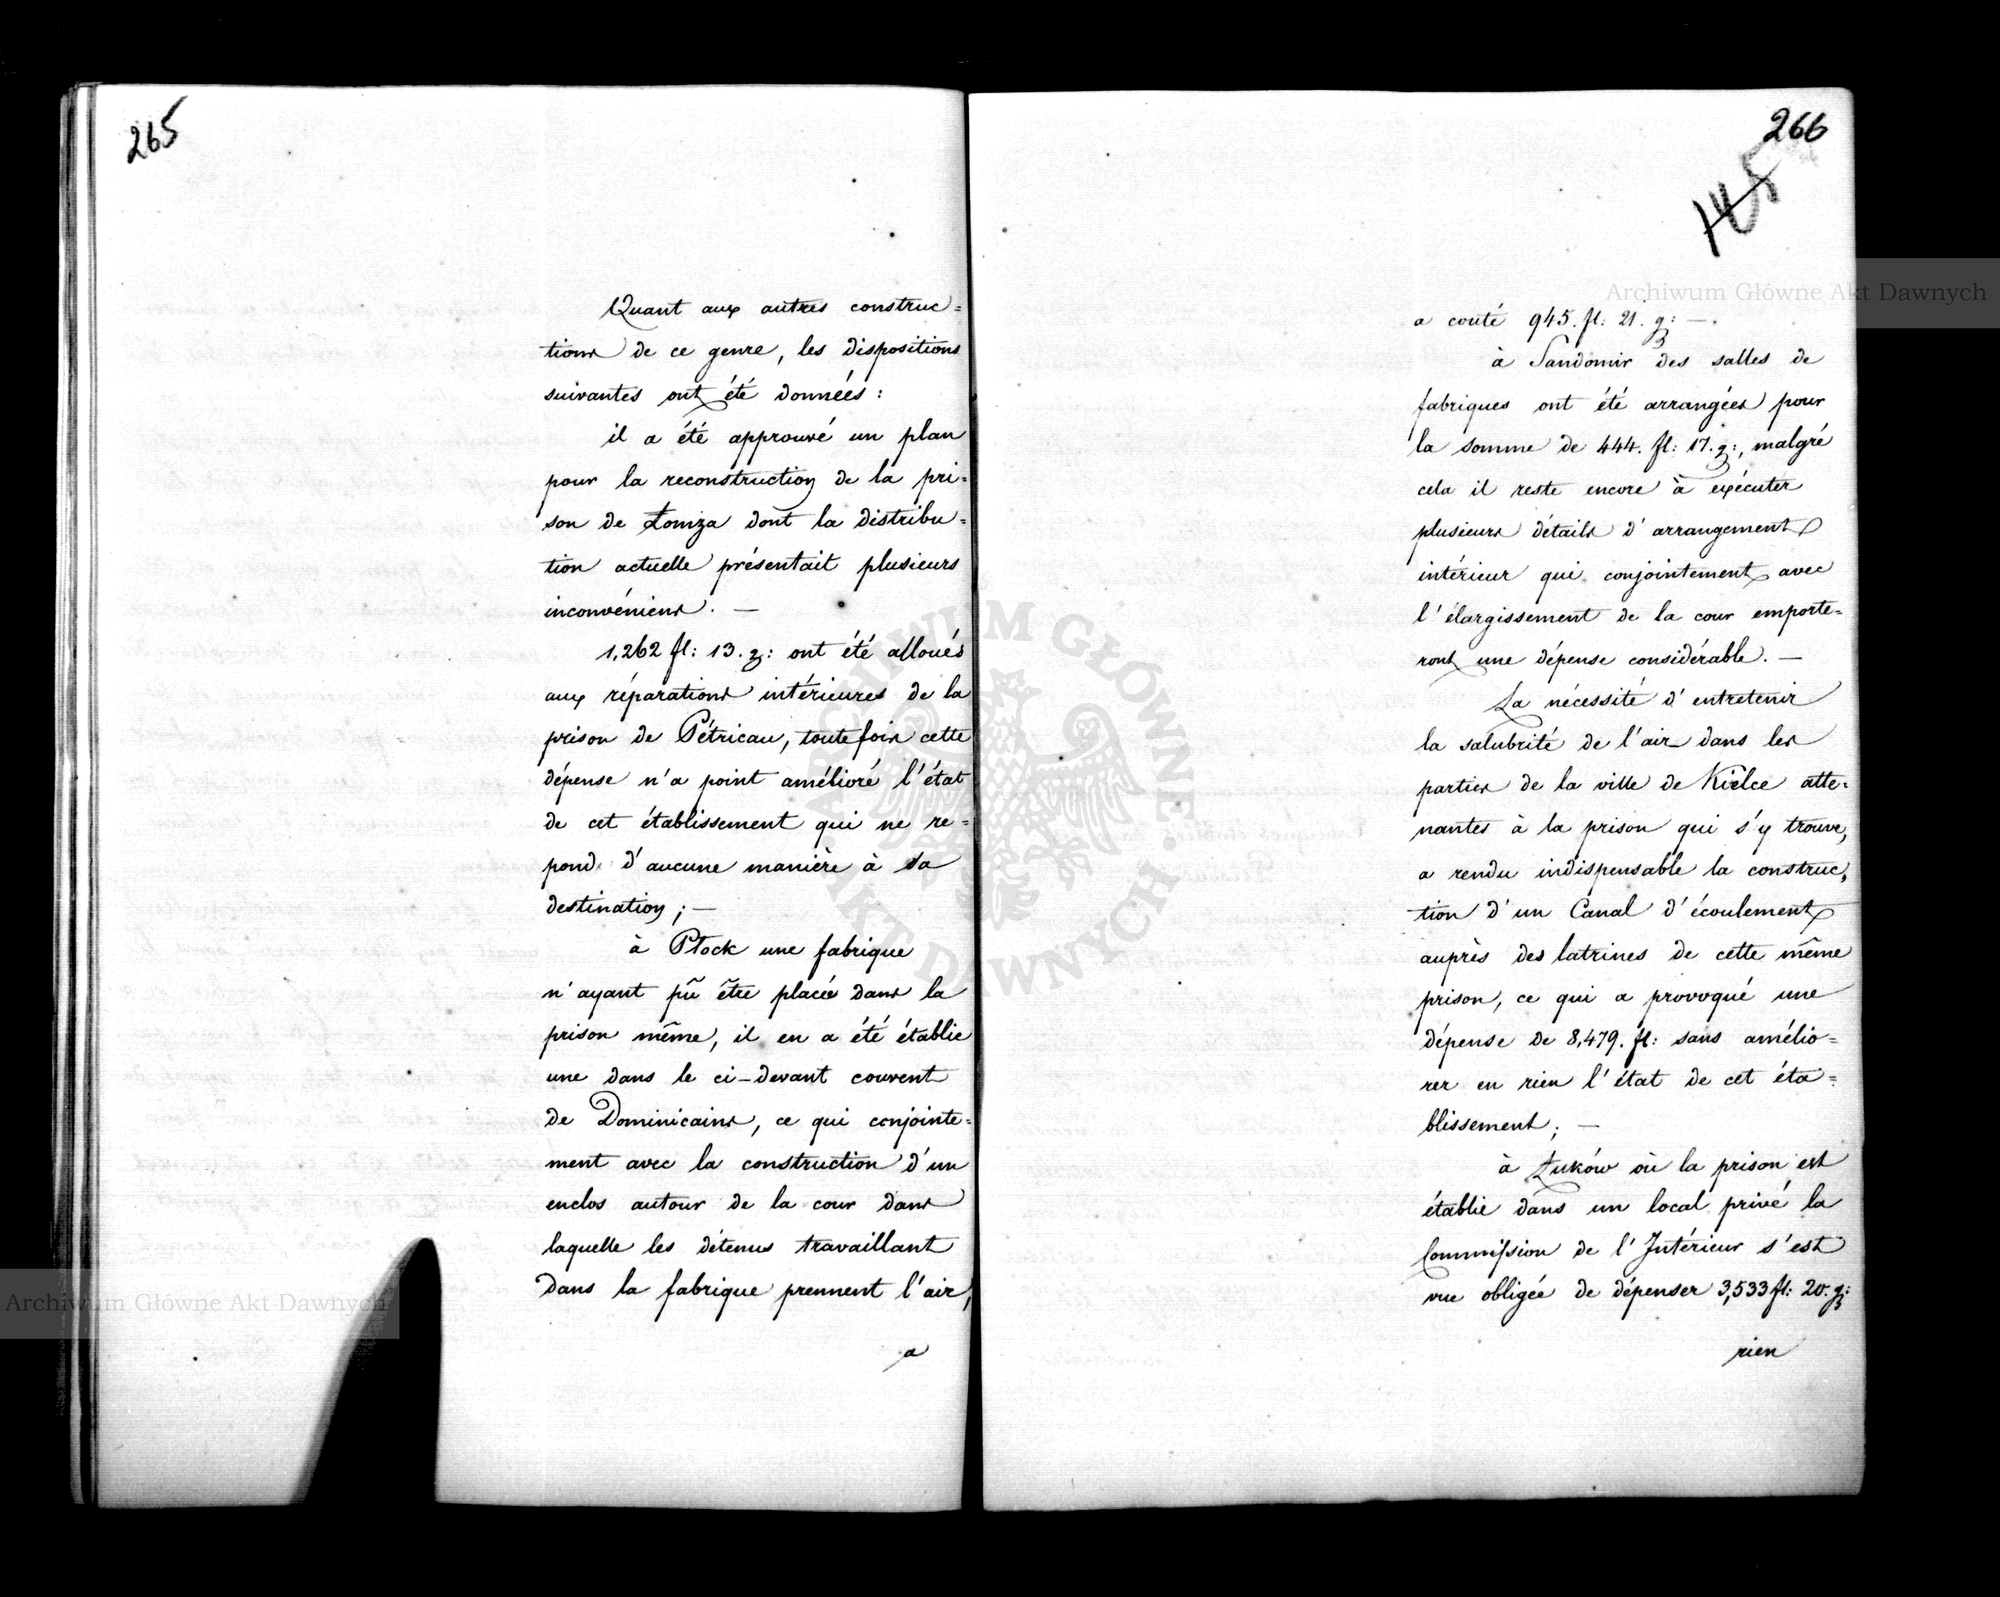 265
Quant aux autres construc=
tions de ce genre, les dispositions
suivantes ont été données :
il a été approuvé un plan
pour la reconstruction de la pri=
son de Łomza dont la distribu=
tion actuelle présentait plusieurs
inconvéniens. —
1,262 fl: 13. g: ont été alloués
aux réparations intérieures de la
prison de Pétricau, toutefois cette
dépense n'a point amélioré l'état
de cet établissement qui ne re=
pond d'aucune manière à sa
destination ; —
à Płock une fabrique
n'ayant pû être placée dans la
prison même, il en a été établie
une dans le ci-devant couvent
de Dominicains, ce qui conjointe=
ment avec la construction d'un
enclos autour de la cour dans
laquelle les détenus travaillant
dans la fabrique prennent l'air,
a
266
145
a couté 945. fl: 21. g: —.
à Sandomir des salles de
fabriques ont été arrangées pour
la somme de 444. fl: 17. g:, malgré
cela il reste encore à exécuter
plusieurs détails d'arrangement
intérieur qui conjointement avec
l'élargissement de la cour emporte=
ront une dépense considérable. —
La nécessité d'entretenir
la salubrité de l'air dans les
parties de la ville de Kielce atte=
nantes à la prison qui s'y trouve,
a rendu indispensable la construc=
tion d'un Canal d'écoulement
auprès des latrines de cette même
prison, ce qui a provoqué une
dépense de 8,479. fl: sans amélio=
rer en rien l'état de cet éta=
blissement ; —
à Łuków où la prison est
établie dans un local privé la
Commission de l'Intérieur s'est
vue obligée de dépenser 3,533 fl: 20. g:
rien
Archiwum Główne Akt Dawnych
Archiwum Główne Akt Dawnych
ARCHIWUM GŁÓWNE AKT DAWNYCH